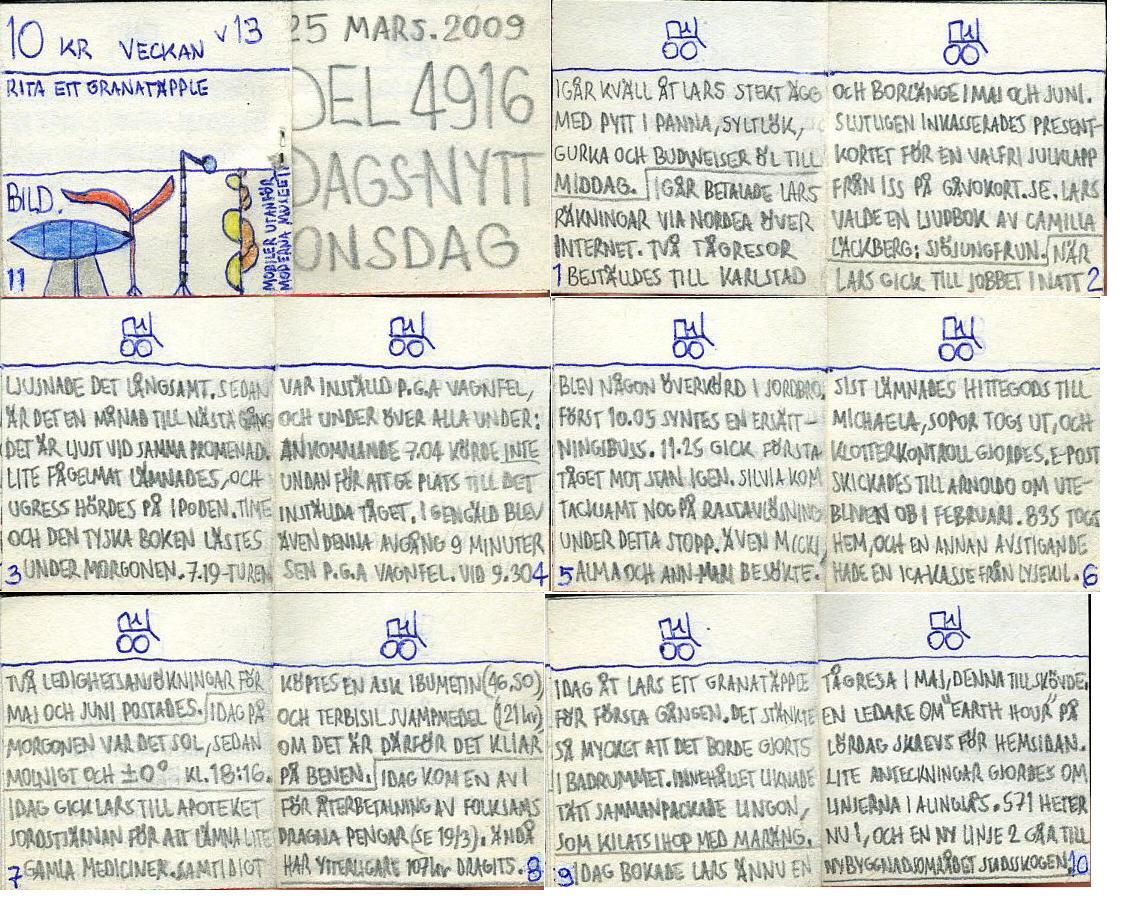 10 KR VECKAN V13
RITA ETT GRANATÄPPLE
BILD.
MOBILER UTANFÖR
MODERNA MUSEET
11
25 MARS.2009
DEL 4916
DAGS-NYTT
ONSDAG
IGÅR KVÄLL ÅT LARS STEKT ÄGG
MED PYTT I PANNA, SYLTLÖK,
GURKA OCH BUDWEISER ÖL TILL
MIDDAG. IGÅR BETALADE LARS
RÄKNINGAR VIA NORDEA ÖVER
INTERNET. TVÅ TÅGRESOR
1 BESTÄLLDES TILL KARLSTAD
OCH BORLÄNGE I MAJ OCH JUNI.
SLUTLIGEN INKASSERADES PRESENT-
KORTET FÖR EN VALFRI JULKLAPP
FRÅN ISS PÅ GÅVOKORT.SE. LARS
VALDE EN LJUDBOK AV CAMILLA
LÄCKBERG: SJÖJUNGFRUN. NÄR
LARS GICK TILL JOBBET I NATT 2
LJUSNADE DET LÅNGSAMT. SEDAN
ÄR DET EN MÅNAD TILL NÄSTA GÅNG
DET ÄR LJUST VID SAMMA PROMENAD.
LITE FÅGELMAT LÄMNADES, OCH
UGRESS HÖRDES PÅ IPODEN. TIME
OCH DEN TYSKA BOKEN LÄSTES
3 UNDER MORGONEN. 7.19-TUREN
VAR INSTÄLLD P.G.A VAGNFEL,
OCH UNDER ÖVER ALLA UNDER:
ANKOMMANDE 7.04 KÖRDE INTE
UNDAN FÖR ATT GE PLATS TILL DET
INSTÄLLDA TÅGET. I GENGÄLD BLEV
ÄVEN DENNA AVGÅNG 9 MINUTER
SEN P.G.A VAGNFEL. VID 9.30 4
BLEV NÅGON ÖVERKÖRD I JORDBRO.
FÖRST 10.05 SYNTES EN ERSÄTT-
NINGSBUSS. 11.25 GICK FÖRSTA
TÅGET MOT STAN IGEN. SILVIA KOM
TACKSAMT NOG PÅ RASTAVLÖSNING
UNDER DETTA STOPP. ÄVEN MICKI,
5 ALMA OCH ANN-MARI BESÖKTE.
SIST LÄMNADES HITTEGODS TILL
MICHAELA, SOPOR TOGS UT, OCH
KLOTTERKONTROLL GJORDES. E-POST
SKICKADES TILL ARNOLDO OM UTE-
BLIVEN OB I FEBRUARI. 835 TOGS
HEM, OCH EN ANNAN AVSTIGANDE
HADE EN ICA-KASSE FRÅN LYSEKIL. 6
TVÅ LEDIGHETSANSÖKNINGAR FÖR
MAJ OCH JUNI POSTADES. IDAG PÅ
MORGONEN VAR DET SOL, SEDAN
MOLNIGT OCH ±0° KL.18:16.
IDAG GICK LARS TILL APOTEKET
JORDSTJÄRNAN FÖR ATT LÄMNA LITE
7 GAMLA MEDICINER. SAMTIDIGT
KÖPTES EN ASK IBUMETIN (46,50),
OCH TERBISIL SVAMPMEDEL (121 kr)
OM DET ÄR DÄRFÖR DET KLIAR
PÅ BENEN. IDAG KOM EN AVI
FÖR ÅTERBETALNING AV FOLKSAMS
DRAGNA PENGAR (SE 19/3). ÄNDÅ
HAR YTTERLIGARE 107 kr DRAGITS. 8
IDAG ÅT LARS ETT GRANATÄPPLE
FÖR FÖRSTA GÅNGEN. DET STÄNKTE
SÅ MYCKET ATT DET BORDE GJORTS
I BADRUMMET. INNEHÅLLET LIKNADE
TÄTT SAMMANPACKADE LINGON,
SOM KILATS IHOP MED MARÄNG.
9 IDAG BOKADE LARS ÄNNU EN
TÅGRESA I MAJ, DENNA TILL SKÖVDE.
EN LEDARE OM "EARTH HOUR" PÅ
LÖRDAG SKREVS FÖR HEMSIDAN.
LITE ANTECKNINGAR GJORDES OM
LINJERNA I ALINGSÅS. 571 HETER
NU 1, OCH EN NY LINJE 2 GÅR TILL
NYBYGGNADSOMRÅDET STADSSKOGEN. 10